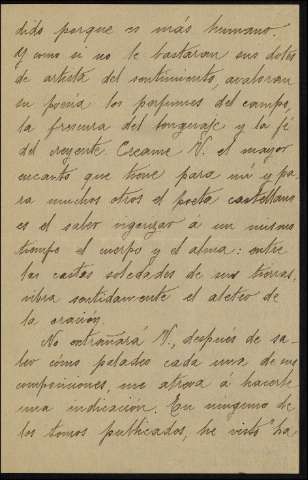 dido porque es más humano.
Y como si no le bastaran sus dotes
de artista del sentimiento, avaloran
su poesía los perfumes del campo,
la frescura del lenguaje y la fé
del creyente. Creame V. el mayor
encanto que tiene para mí y pa-
ra muchos otros el poeta castellano
es el saber vigorizar á un mismo
tiempo el cuerpo y el alma: entre
las castas soledades de sus tierras,
vibra sentidamente el aleteo de
la oración.
No extrañará V., después de sa-
ber cómo paladeo cada una de sus
composiciones, me atreva á hacerle
una indicación. En ninguno de
los tomos publicados, he visto "La